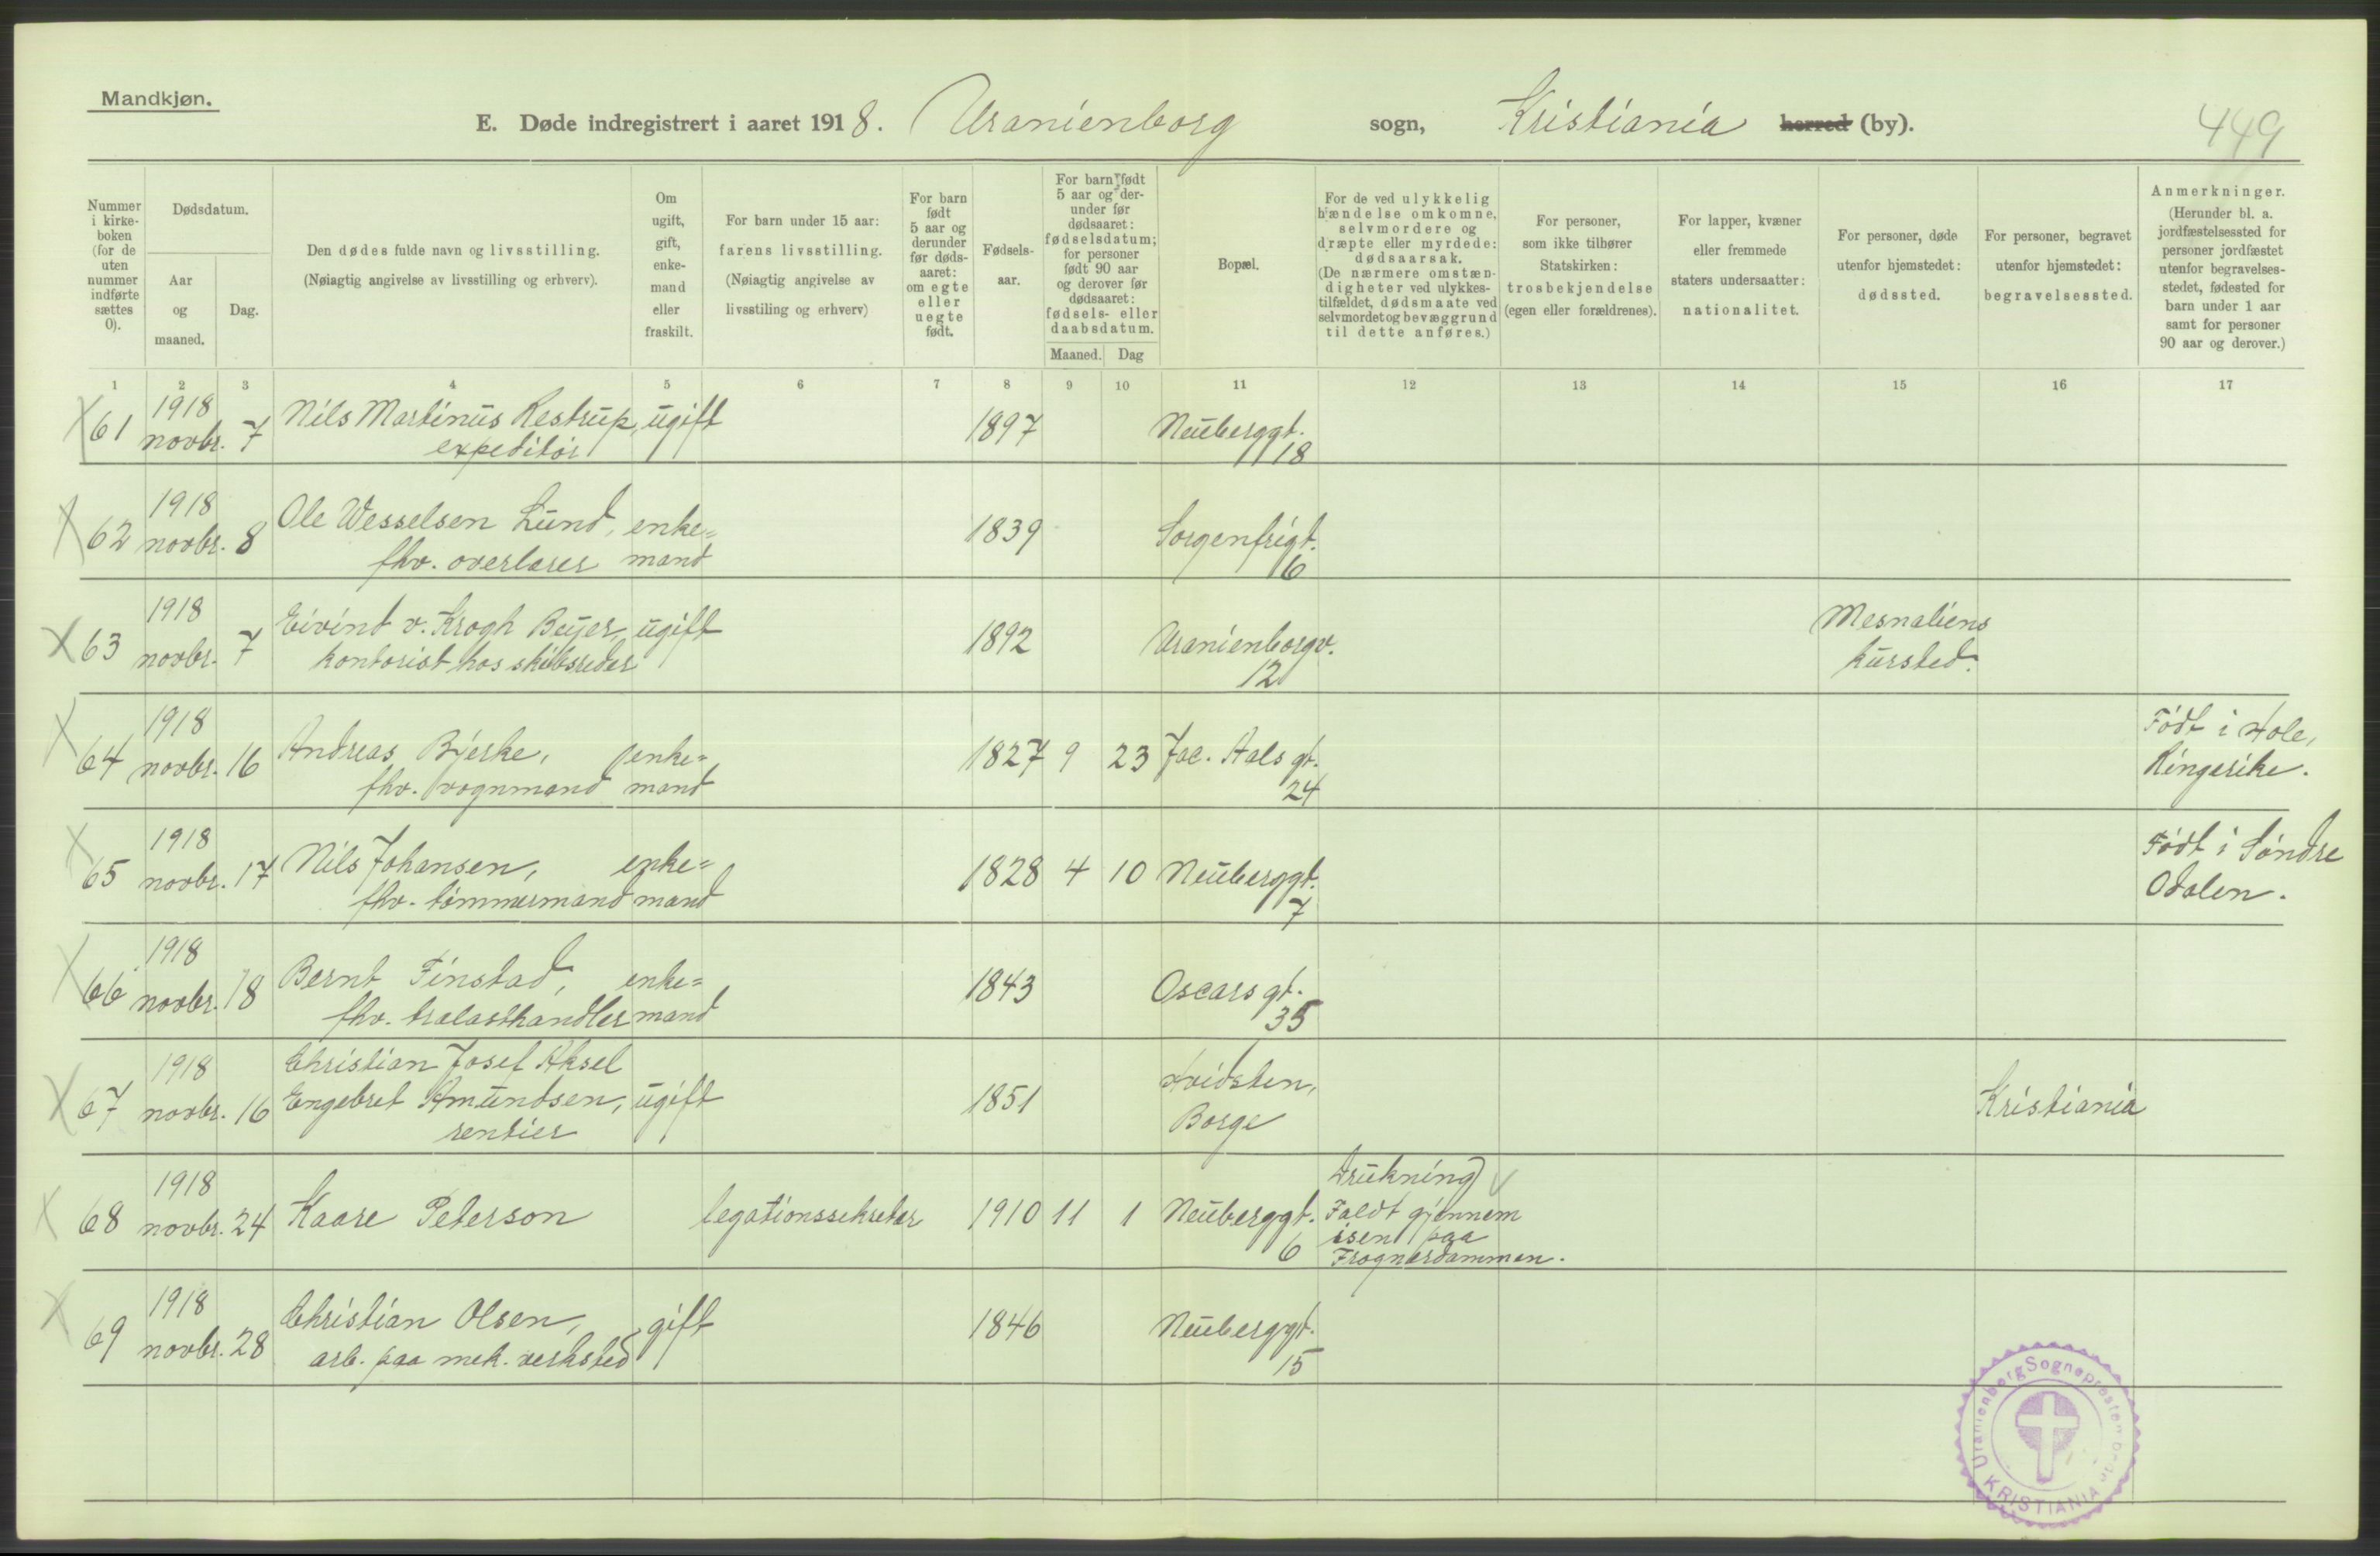 Mandkjøn.
E. Døde indregistrert i aaret 1918. Uranienborg sogn, Kristiania herred (by).
449
Nummer i kirke-boken (for de uten nummer indførte sættes 0).
Dødsdatum.
Aar og maaned.
Dag.
Den dødes fulde navn og livsstilling.
(Nøiagtig angivelse av livsstilling og erhverv).
Om ugift, gift, enke-mand eller fraskilt.
For barn under 15 aar: farens livsstilling.
(Nøiagtig angivelse av livsstiling og erhverv)
For barn født 5 aar og derunder før døds-aaret: om egte eller uegte født.
Fødsels-aar.
For barn født 5 aar og der-under før dødsaaret: fødselsdatum; for personer født 90 aar og derover før dødsaaret: fødsels- eller daabsdatum.
Maaned.
Dag
Bopæl.
For de ved ulykkelig hændelse omkomne, selvmordere og dræpte eller myrdede: dødsaarsak.
(De nærmere omstæn-digheter ved ulykkes-tilfældet, dødsmaate ved selvmordet og bevæggrund til dette anføres.)
For personer, som ikke tilhører Statskirken: trosbekjendelse (egen eller forældrenes).
For lapper, kvæner eller fremmede staters undersaatter: nationalitet.
For personer, døde utenfor hjemstedet: dødssted.
For personer, begravet utenfor hjemstedet: begravelsessted.
Anmerkninger.
(Herunder bl. a. jordfæstelsessted for personer jordfæstet utenfor begravelses-stedet, fødested for barn under 1 aar samt for personer 90 aar og derover.)
1 2 3 4 5 6 7 8 9 10 11 12 13 14 15 16 17
X 61 1918 novbr. 7 Nils Martinus Restrup, ugift 1897 Neuberggt.
expeditør 18
X 62 1918 novbr. 8 Ole Wesselsen Lund, enke= 1839 Sorgenfrigt.
fhv. overlærer mand 6
X 63 1918 novbr. 7 Eivind v. Krogh Beyer, ugift 1892 Uranienborgv. Mesnaliens
kontorist hos skibsreder 12 kursted.
X 64 1918 novbr. 16 Andreas Bjerke, enke= 1827 9 23 Jac. Aals gt. Født i Hole,
fhv. vognmand mand 24 Ringerike.
X 65 1918 novbr. 17 Nils Johansen, enke= 1828 4 10 Neuberggt. Født i Søndre
fhv. tømmermand mand 7 Odalen.
X 66 1918 novbr. 18 Bernt Finstad, enke= 1843 Oscars gt.
fhv. trælasthandler mand 35
X 67 1918 novbr. 16 Christian Josef Aksel
Engebret Amundsen, ugift 1851 Hvidsten, Kristiania
rentier Borge
X 68 1918 novbr. 24 Kaare Peterson legationssekretær 1910 11 1 Neuberggt. 6
Drukning
Faldt gjennem
isen paa
Frognerdammen.
X 69 1918 novbr. 28 Christian Olsen, gift 1846 Neuberggt.
arb. paa mek. verksted 15
Uranienborg Sogneprestembede
KRISTIANIA